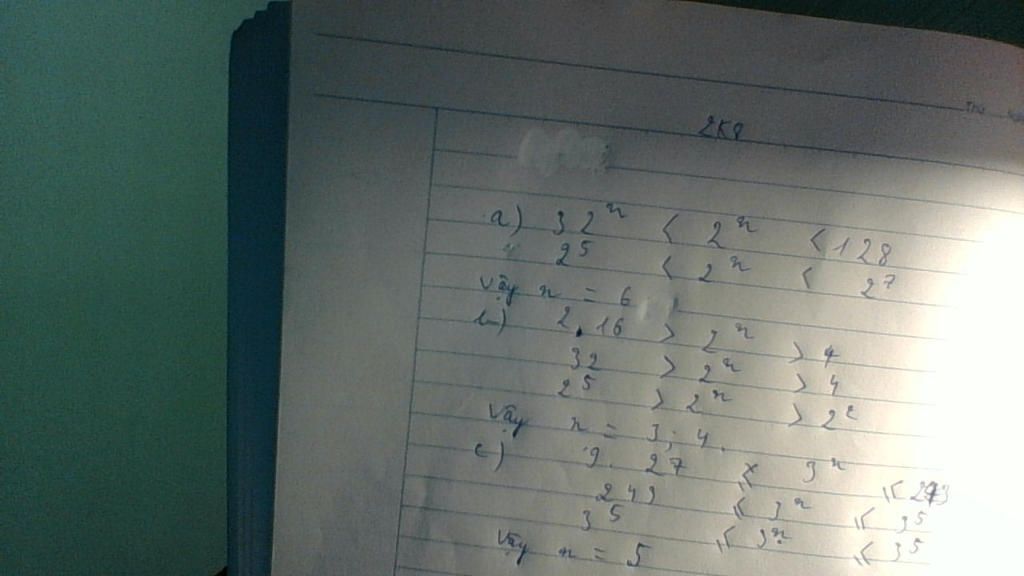 Thứ
2K8
a) 32ⁿ < 2ⁿ < 128
2⁵ < 2ⁿ < 2⁷
Vậy n = 6
b) 2.16 > 2ⁿ > 4
32 > 2ⁿ > 4
2⁵ > 2ⁿ > 2²
Vậy n = 3; 4.
c) 9. 27 ≤ 3ⁿ ≤ 243
243 ≤ 3ⁿ ≤ 3⁵
3⁵ ≤ 3ⁿ ≤ 3⁵
Vậy n = 5